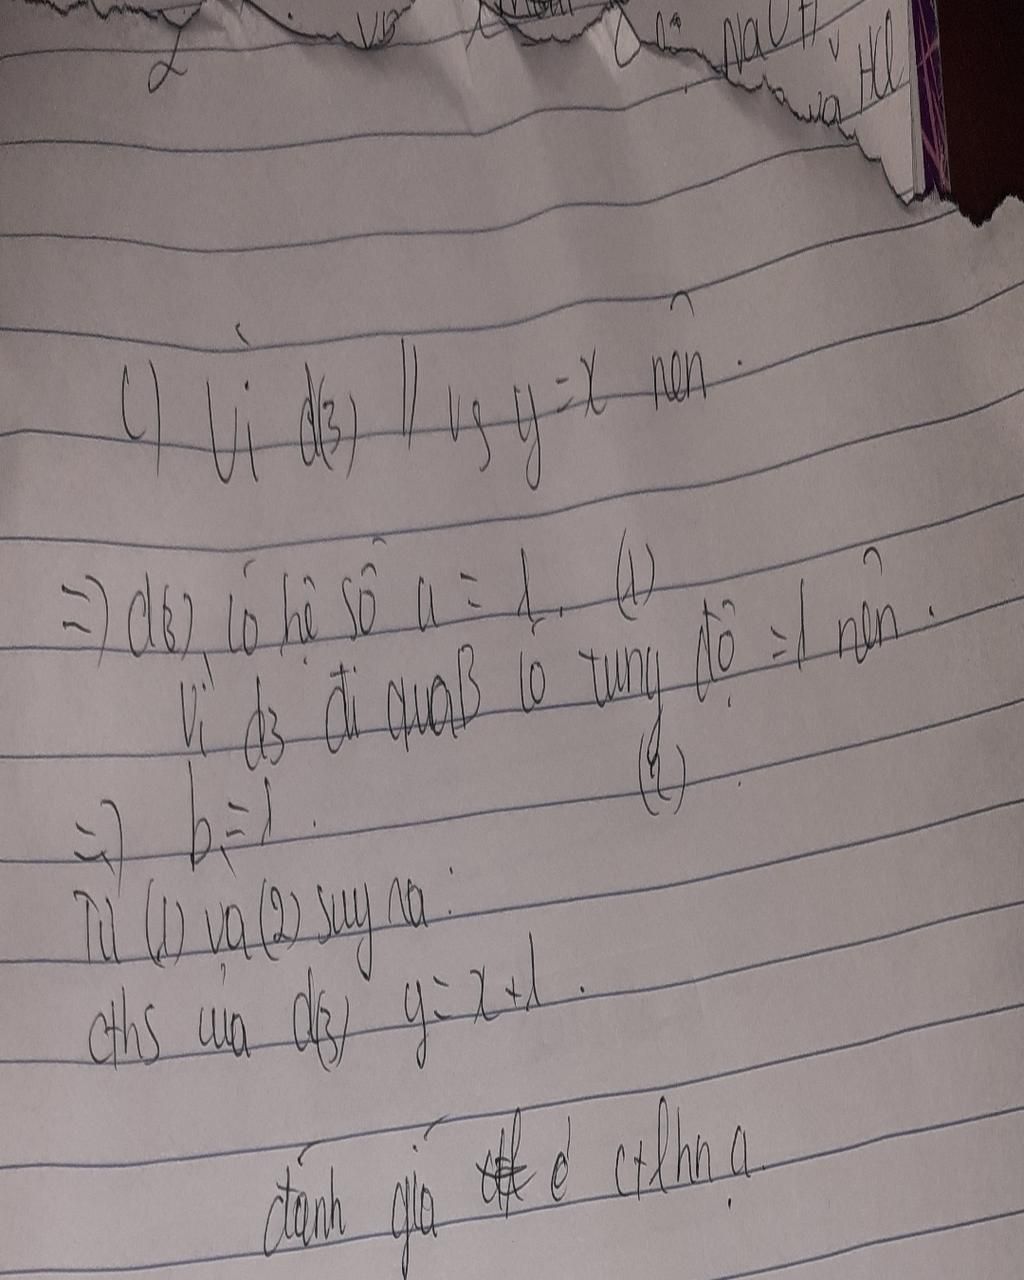 NaOH
và HCl
c) Vì d(3) // vs y = x nên.
=) d(3) có hệ số a = 1. (1)
Vì d3 đi qua B có tung độ = 1 nên.
(2)
=) b = 1.
Từ (1) và (2) suy ra:
cths của d(3) y = x + 1.
đánh giá e ctlhn ạ